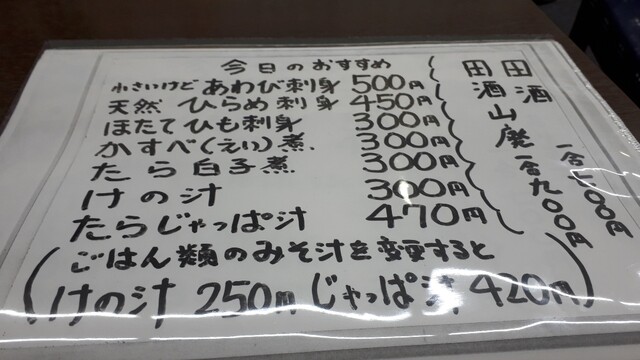 今日のおすすめ
小さいけど あわび刺身 500円
天然 ひらめ刺身 450円
ほたてひも刺身 300円
かすべ(えい)煮 300円
たら白子煮 300円
けの汁 300円
たらじゃっぱ汁 470円
(ごはん類のみそ汁を変更すると
けの汁 250円 じゃっぱ汁 420円)
田酒 一合七〇〇円
田酒山廃 一合九〇〇円